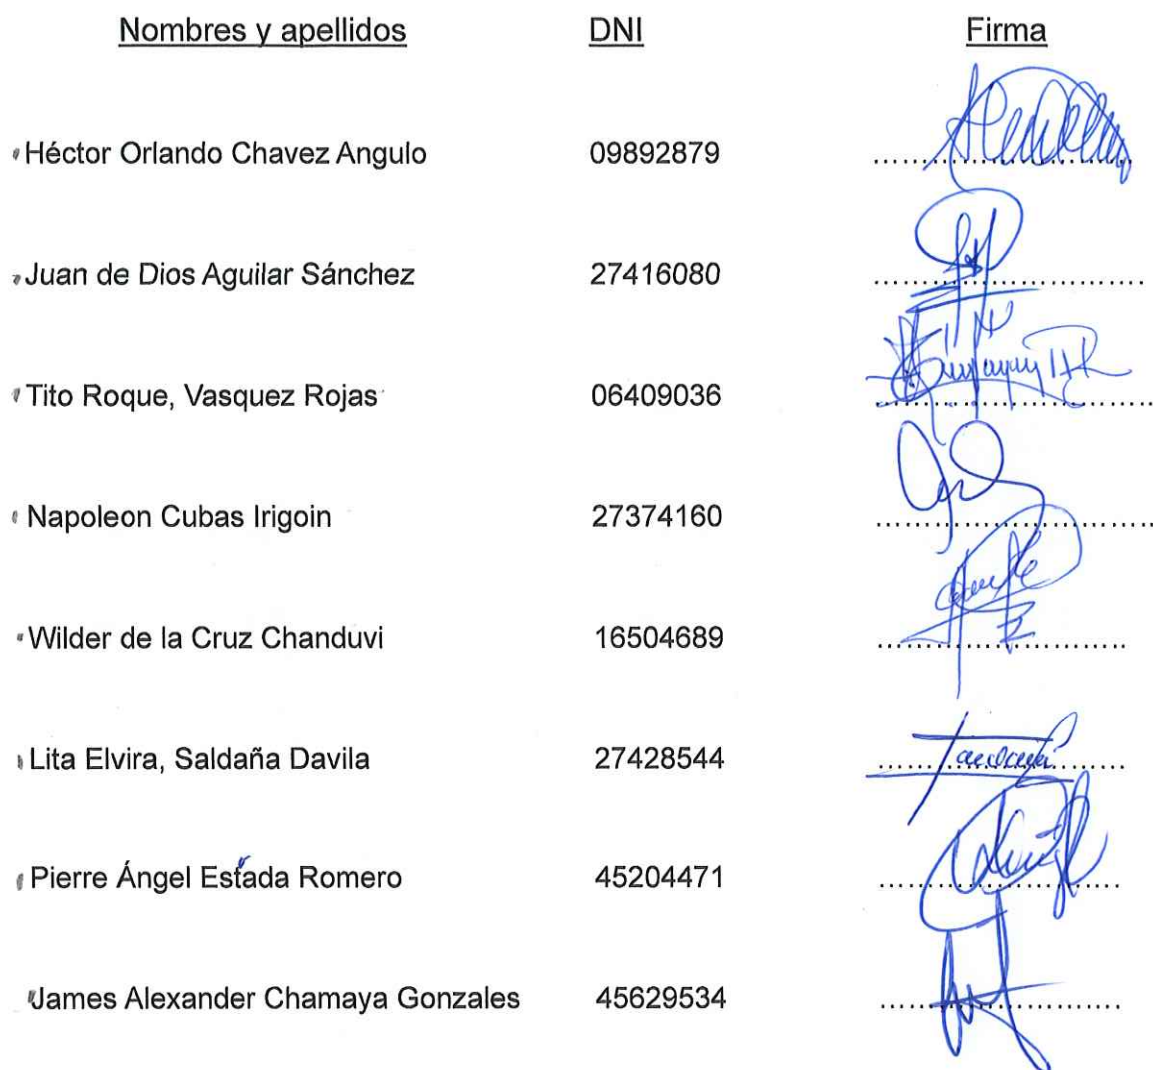 Nombres y apellidos DNI Firma
Héctor Orlando Chavez Angulo 09892879
Juan de Dios Aguilar Sánchez 27416080
Tito Roque, Vasquez Rojas 06409036
Napoleon Cubas Irigoin 27374160
Wilder de la Cruz Chanduvi 16504689
Lita Elvira, Saldaña Davila 27428544
Pierre Ángel Estada Romero 45204471
James Alexander Chamaya Gonzales 45629534